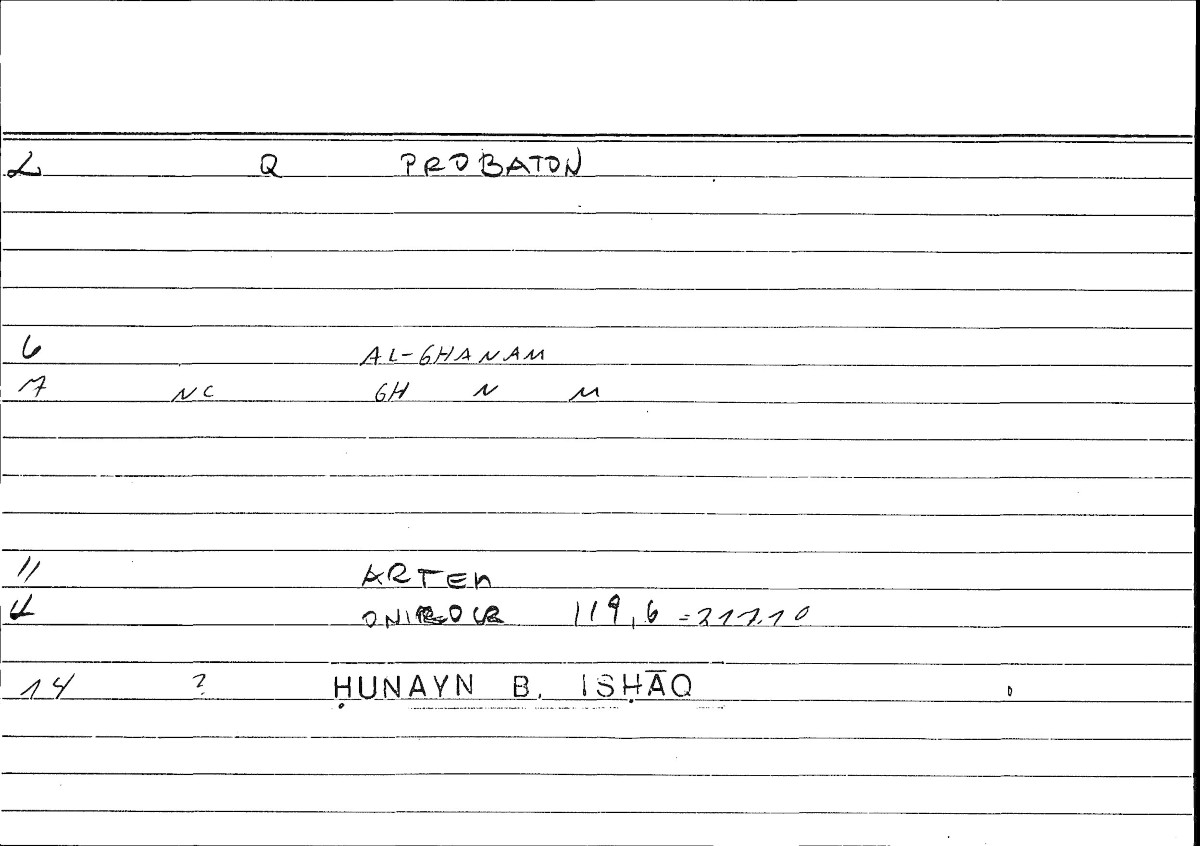 2 Q PROBATON
6 AL-GHANAM
7 NC GH N M
11 ARTEM
12 ONIROCR 119,6 = 217.10
14 ? ḤUNAYN B. ISḤĀQ